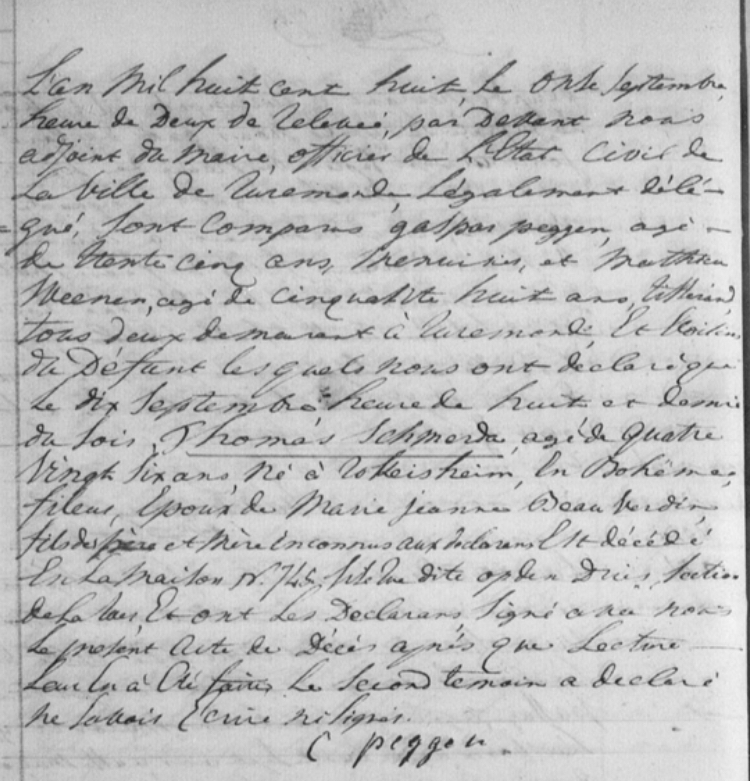 L'an Mil huit cent huit, Le onse septembre
heure de Deux de relevée, par Devant nous
adjoint du maire officier de L'Etat Civil de
La Ville de Ruremonde Légalement délé-
gué, Sont Comparus gaspar peggen, agé
de trente cinq ans, et Mathieu
Weenen, agé de cinquante huit ans, tisserand,
tous deux demeurant à Ruremonde Et Voisins
du Défunt lesquels nous ont déclaré que
Le dix Septembre heure de huit et demie
du soir, Thomas Schmerda, agé de quatre
Vingt Six ans, Né à En Bohême,
fileur, Epoux de Marie jeanne Beauverdin,
fils de père et Mère inconnus aux declarans Est décédé
En La Maison N°. 745 rue dite op den Dries, Section
de La Et ont Les Declarans Signé avec nous
Le présent Acte de Décès après que Lecture
Leur en à été faite, Le Second temoin a declaré
ne savoir Ecrire ni signer.
C peggen